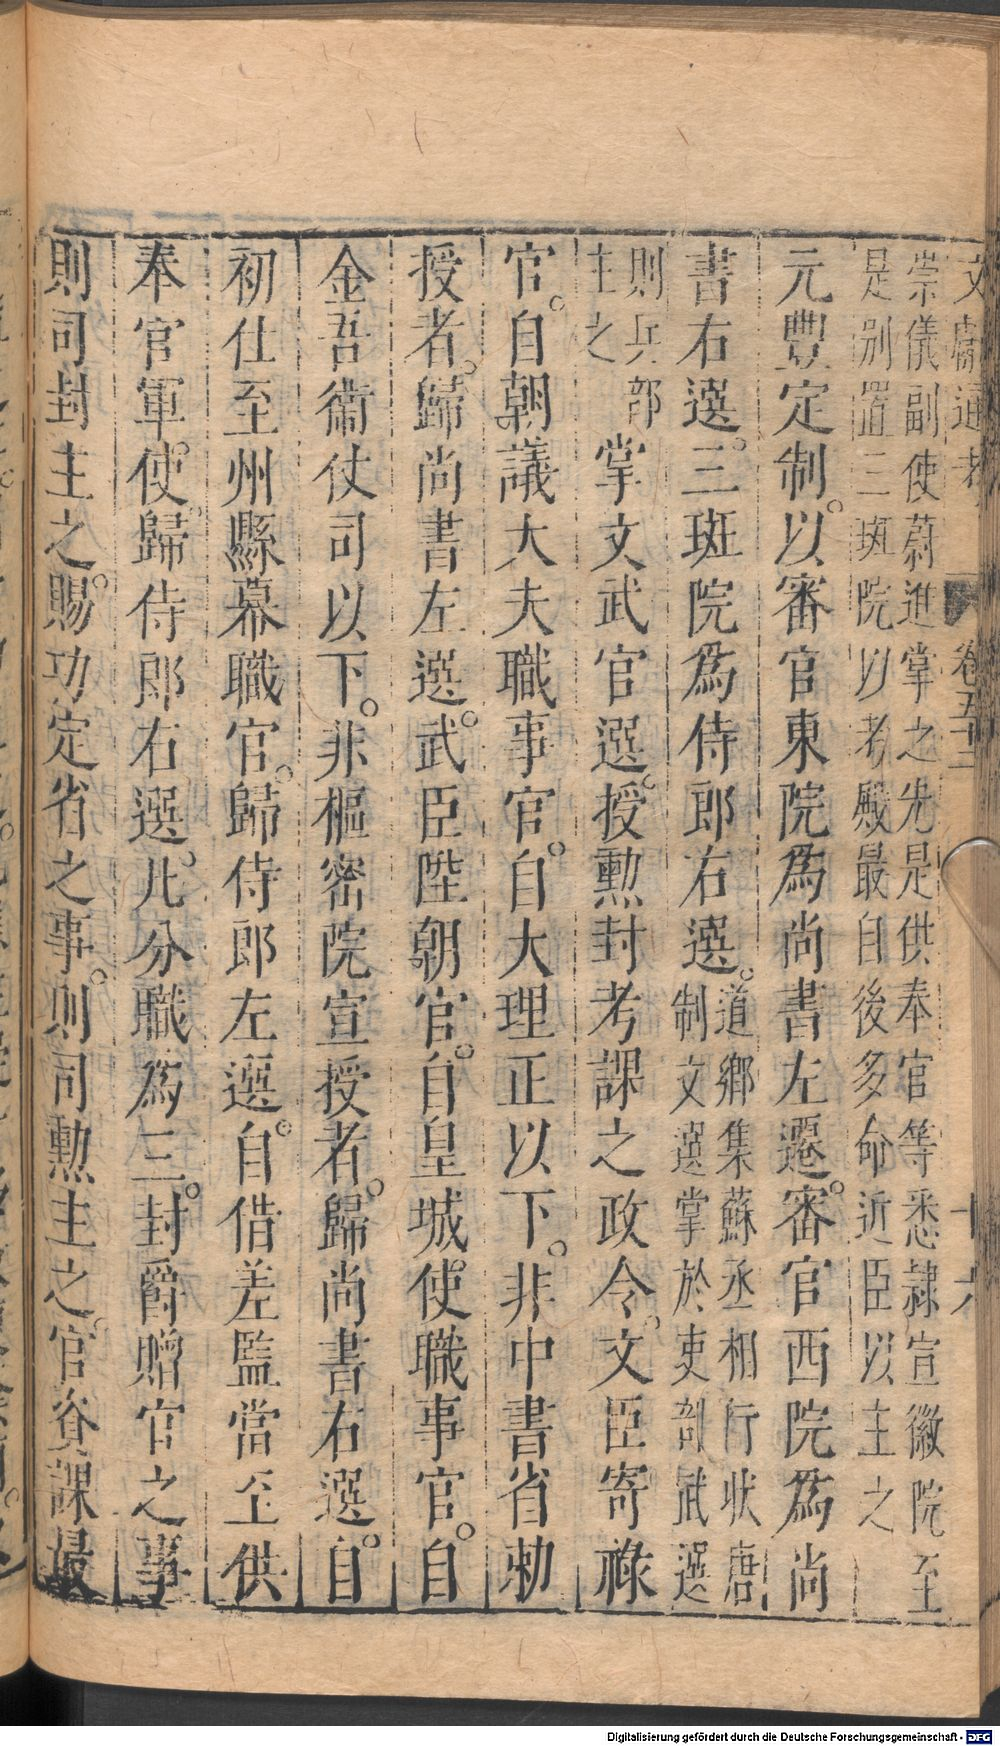 文獻通考 卷五十二 十六
崇儀副使蔚進掌之先是供奉官等悉隷宣徽院至
是别置三班院以考殿最自後多命近臣以主之
元豐定制。以審官東院爲尚書左選。審官西院爲尚
書右選。三班院爲侍郎右選。道鄉集蘇丞相行狀唐
制文選掌於吏部武選
則兵部
主之
掌文武官選。授勲封考課之政令。文臣寄祿
官。自朝議大夫職事官。自大理正以下。非中書省勅
授者。歸尚書左選。武臣陞朝官。自皇城使職事官。自
金吾衛仗司以下。非樞密院宣授者。歸尚書右選。自
初仕至州縣幕職官。歸侍郎左選。自借差監當至供
奉官軍使。歸侍郎右選。凡分職爲三。封爵贈官之事
則司封主之。賜功定省之事。則司勲主之。官資課最
Digitalisierung gefördert durch die Deutsche Forschungsgemeinschaft - DFG